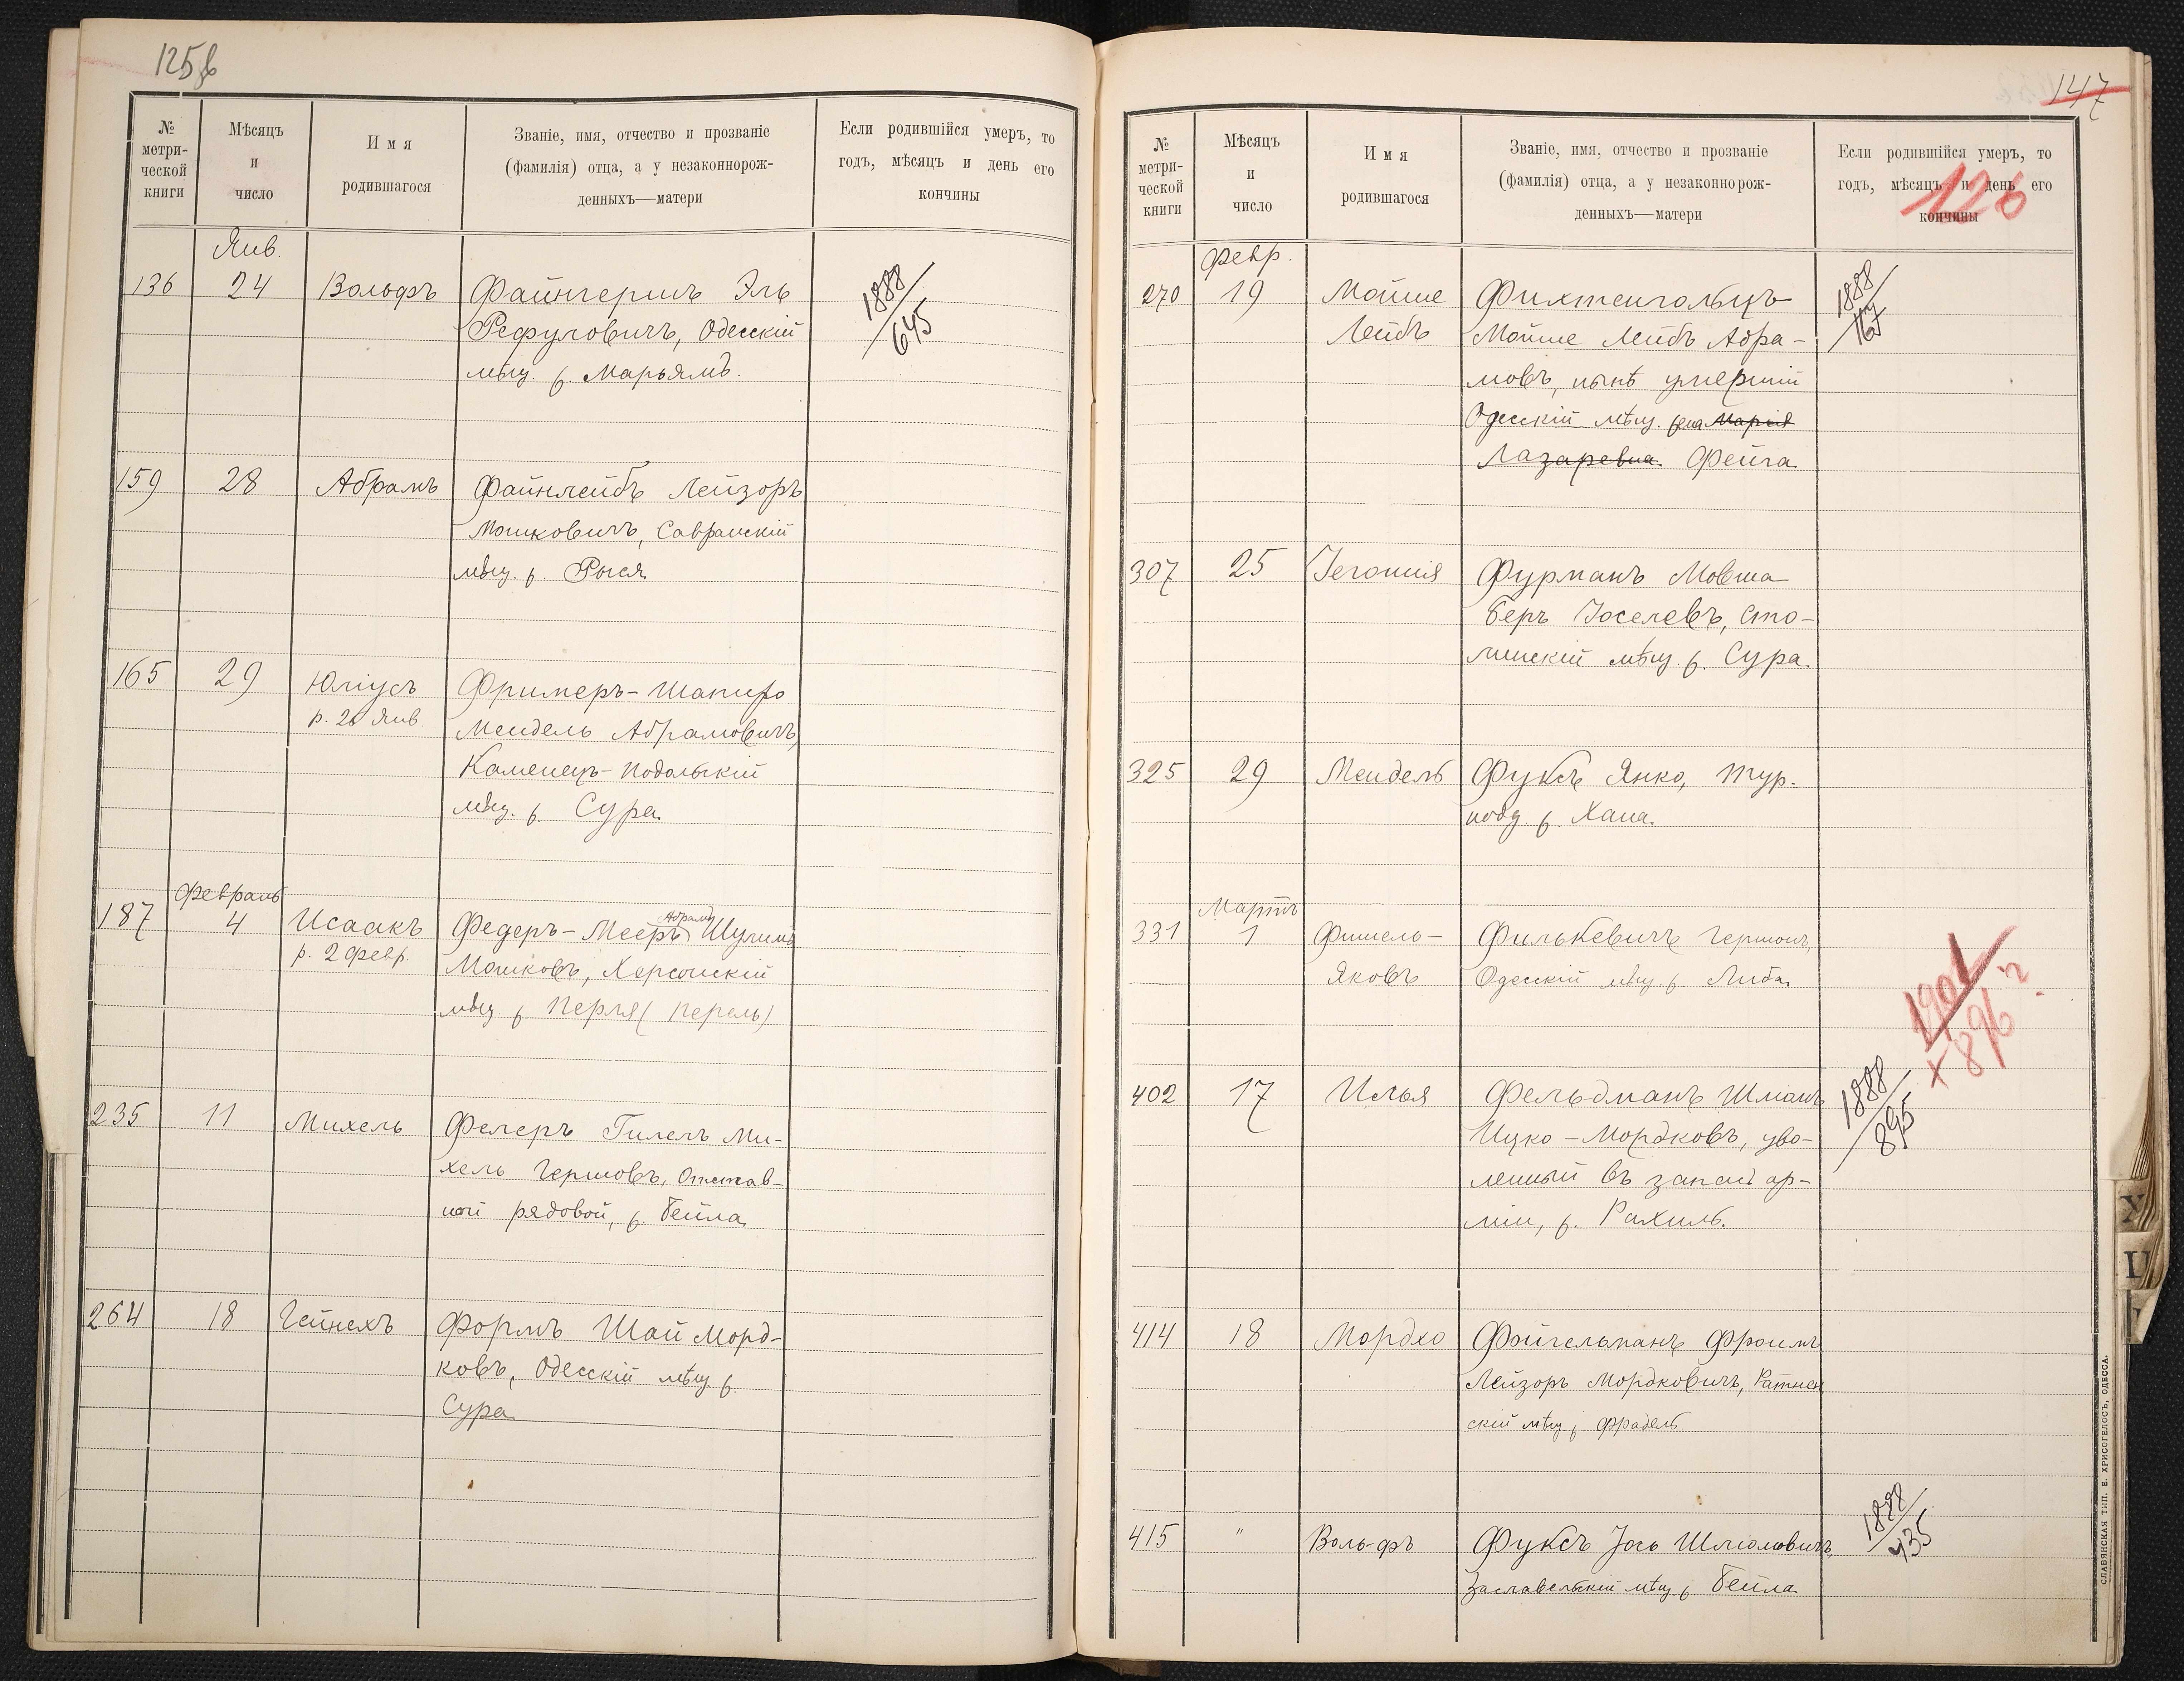 125б
№ метри-ческой книги
Мѣсяцъ и число
Имя родившагося
Званіе, имя, отчество и прозваніе (фамилія) отца, а у незаконнорож-денныхъ—матери
Если родившійся умеръ, то годъ, мѣсяцъ и день его кончины
Янв.
136 24 Вольфъ Файнгершъ Эль 1888/645
Рефуловичъ, Одесскій
мѣщ. ж. Марьямъ.
159 28 Абрамъ Файнлейбъ Лейзоръ
Мошковичъ, Савранскій
мѣщ. ж. Рыся
165 29 Юліусъ Фримеръ-Шапиро
р. 26 Янв. Мендель Абрамовичъ,
Каменецъ-Подольскій
мѣщ. ж. Сура
Февраль
187 4 Исаакъ Федеръ-Мееръ Абрамъ Шулимъ
р. 2 Февр. Мошковъ, Херсонскій
мѣщ ж Перля (Перель)
235 11 Михель Фелеръ Гилель Ми-
хель Гершовъ, Отстав-
ной рядовой, ж. Бейла
264 18 Гейнехъ Формъ Шай Морд-
ковъ, Одесскій мѣщ. ж
Сура
147
№ метри-ческой книги
Мѣсяцъ и число
Имя родившагося
Званіе, имя, отчество и прозваніе (фамилія) отца, а у незаконнорож-денныхъ—матери
Если родившійся умеръ, то годъ, мѣсяцъ и день его кончины
126
Февр.
270 19 Мойше Фихтенгольцъ 1888/167
Лейбъ Мойше Лейбъ Абра-
мовъ, нынѣ умершій
Одесскій мѣщ. жена Марія
Лазаревна Фейга
307 25 Іегошія Фурманъ Мовша
Беръ Іоселевъ, Сто-
линскій мѣщ. ж. Сура
325 29 Мендель Фуксъ Янко, Тур.
подд. ж. Хана.
Мартъ
331 1 Фишель- Филькевичъ Гершонъ,
Яковъ Одесскій мѣщ. ж. Либа
1901
+ 896 ?
402 17 Илья Фельдманъ Шліомъ 1888/895
Ицко-Мордковъ, уво-
ленный въ запасъ ар-
міи, ж. Рахиль.
414 18 Мордхо Фойгельманъ Фроимъ
Лейзоръ Мордковичъ, Ратнен
скій мѣщ. ж Фрадель.
415 " Вольфъ Фуксъ Іось Шліомовичъ, 1888/435
Заславельскій мѣщ. ж Бейла
СЛАВЯНСКАЯ ТИП. Е. ХРИСОГЕЛОСЪ, ОДЕССА.
Х